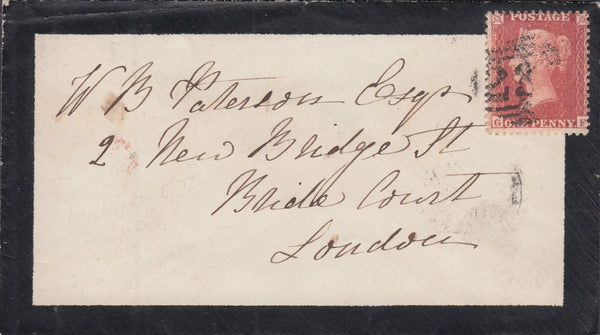 POSTAGE
ONE PENNY
W B Paterson Esqr
2 New Bridge St
Bride Court
London